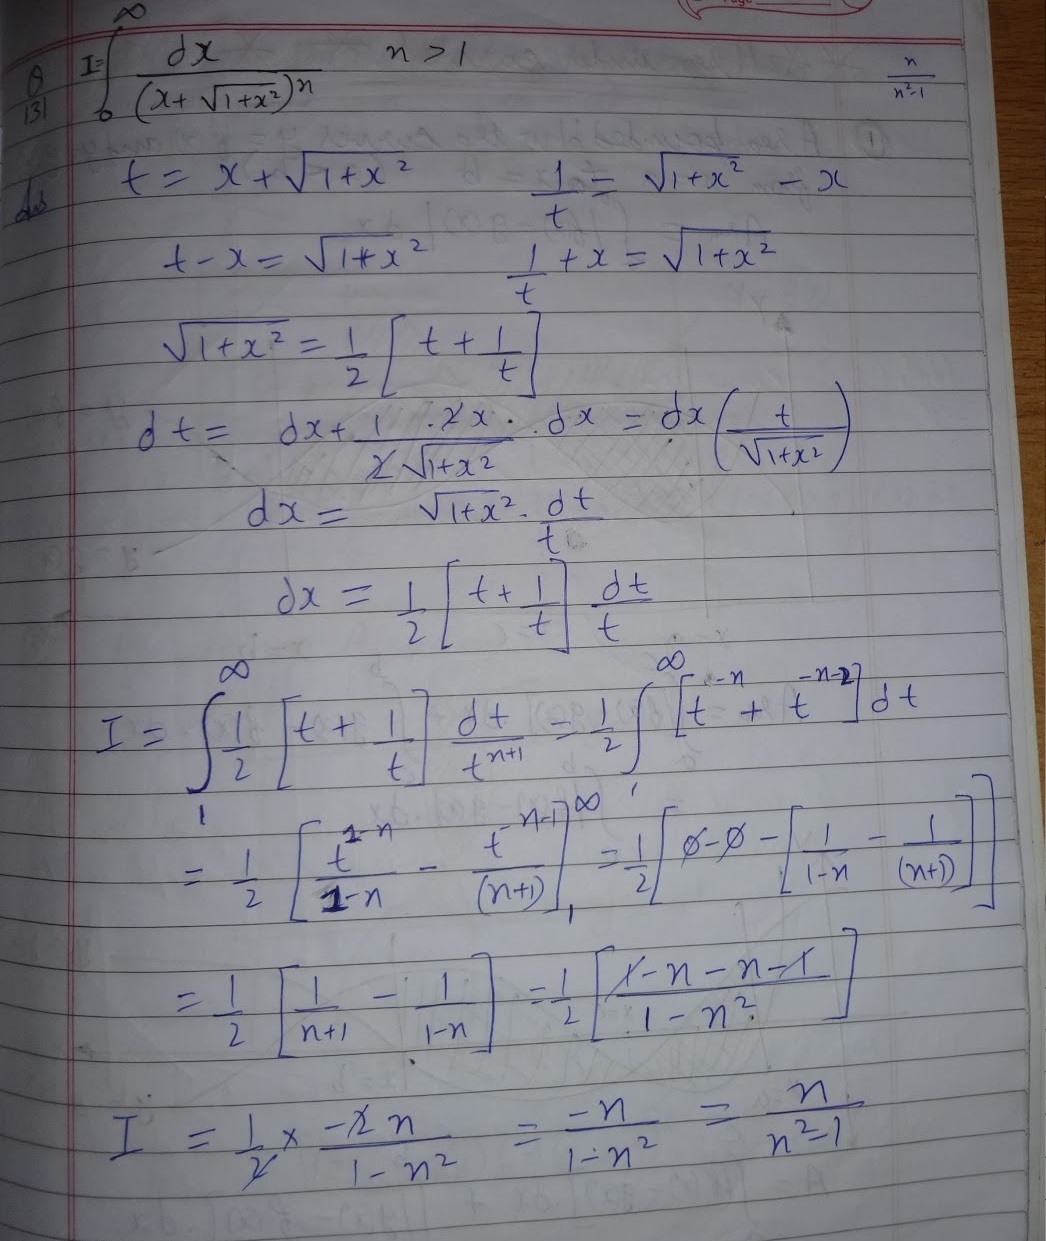 Q 131 I = ∫₀^∞ dx / (x + √(1+x²))ⁿ n > 1 n/(n²-1)
Ans t = x + √(1+x²) 1/t = √(1+x²) - x
t - x = √(1+x²) 1/t + x = √(1+x²)
√(1+x²) = 1/2 [t + 1/t]
dt = dx + 1/(2√(1+x²)) . 2x . dx = dx (t/√(1+x²))
dx = √(1+x²) . dt/t
dx = 1/2 [t + 1/t] dt/t
I = ∫₁^∞ 1/2 [t + 1/t] dt/tⁿ⁺¹ = 1/2 ∫₁^∞ [t⁻ⁿ + t⁻ⁿ⁻²] dt
= 1/2 [t¹⁻ⁿ/(1-n) - t⁻ⁿ⁻¹/(n+1)]₁^∞ = 1/2 [0 - 0 - [1/(1-n) - 1/(n+1)]]
= 1/2 [1/(n+1) - 1/(1-n)] = 1/2 [(1 - n - n - 1)/(1 - n²)]
I = 1/2 × -2n/(1 - n²) = -n/(1 - n²) = n/(n² - 1)